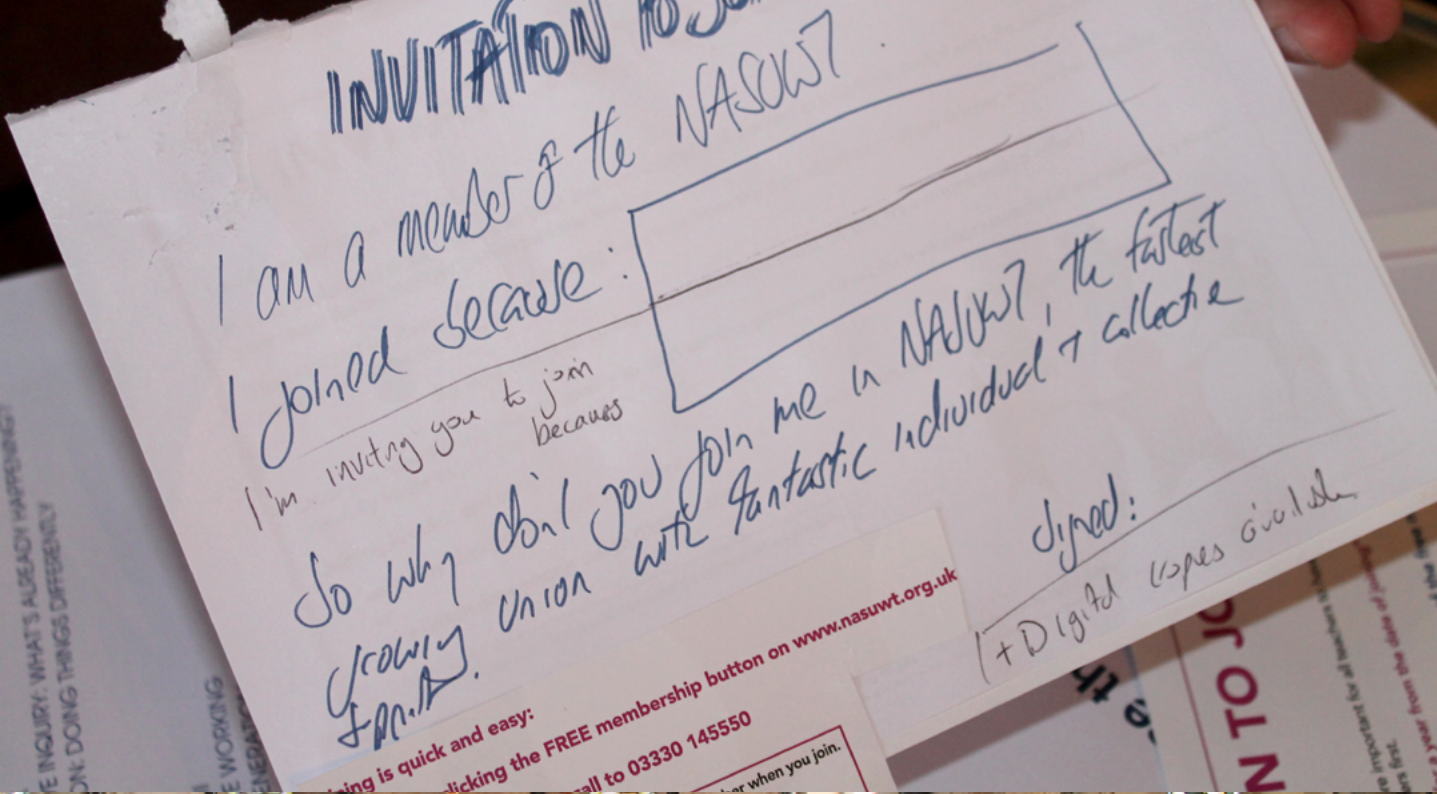 INVITATION TO JO
I am a member of the NASUWT
I joined because:
I'm inviting you to join
because
So why don't you join me in NASUWT, the fastest
growing union with fantastic individual + collective
Signed:
+ Digital copies available
ing is quick and easy:
licking the FREE membership button on www.nasuwt.org.uk
all to 03330 145550
ber when you join.
E INQUIRY: WHAT'S ALREADY HAPPENING?
ON: DOING THINGS DIFFERENTLY
E WORKING
ENERATI
N TO JO
e important for all teachers to
a year from the date of joining
rs first.